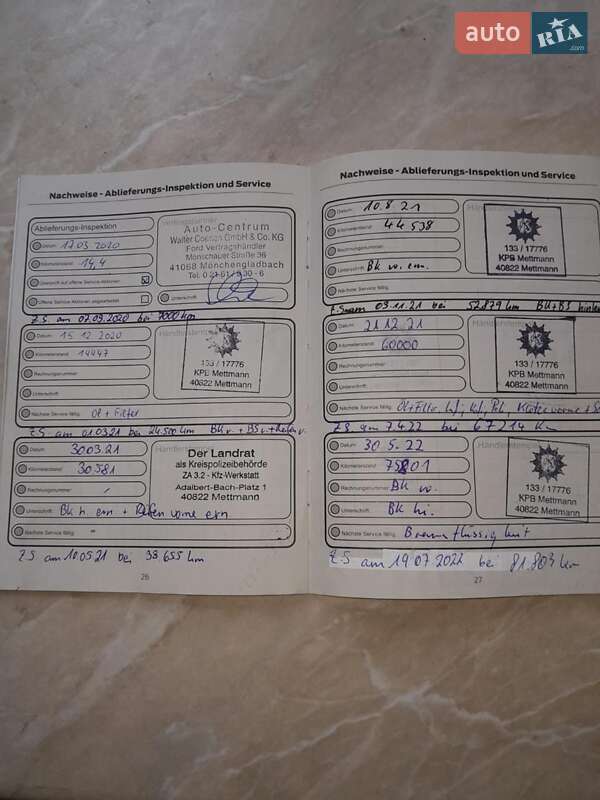 auto RIA .com
Nachweise - Ablieferungs-Inspektion und Service
Ablieferungs-Inspektion
Datum: 17.03.2020
Kilometerstand: 14,4
Überprüft auf offene Service-Aktionen
Offene Service-Aktionen abgearbeitet
Auto-Centrum
Walter Coenen GmbH & Co. KG
Ford Vertragshändler
Monschauer Straße 36
41068 Mönchengladbach
Unterschrift:
Z.S. am 07.09.2020 bei 7000 km
Datum: 15.12.2020
Kilometerstand: 14447
Rechnungsnummer:
Unterschrift:
Nächste Service fällig: Öl + Filter
133 / 17776
KPB Mettmann
40822 Mettmann
Z.S. am 01.03.21 bei 24.500 km
Datum: 30.03.21
Kilometerstand: 30.581
Rechnungsnummer:
Unterschrift: Bk h. ern + Reifen vorne ern
Nächste Service fällig: -
Der Landrat
als Kreispolizeibehörde
ZA 3.2 - Kfz-Werkstatt
Adalbert-Bach-Platz 1
40822 Mettmann
Z.S. am 10.05.21 bei 33.655 km
26
Nachweise - Ablieferungs-Inspektion und Service
Datum: 10.8.21
Kilometerstand: 44538
Rechnungsnummer:
Unterschrift: Bk v. ern.
133 / 17776
KPB Mettmann
40822 Mettmann
03.11.21 bei 52.879 km Bk + BS hinten
Datum: 21.12.21
Kilometerstand: 60000
Rechnungsnummer:
Unterschrift:
133 / 17776
KPB Mettmann
40822 Mettmann
Nächste Service fällig: Öl + Filter
Z.S. am 7.4.22 bei 67214 km
Datum: 30.5.22
Kilometerstand: 75801
Rechnungsnummer: Bk v.
Unterschrift: Bk hi.
Nächste Service fällig: Bremsflüssigkeit
133 / 17776
KPB Mettmann
40822 Mettmann
Z.S am 19.07.2022 bei 81.803 km
27